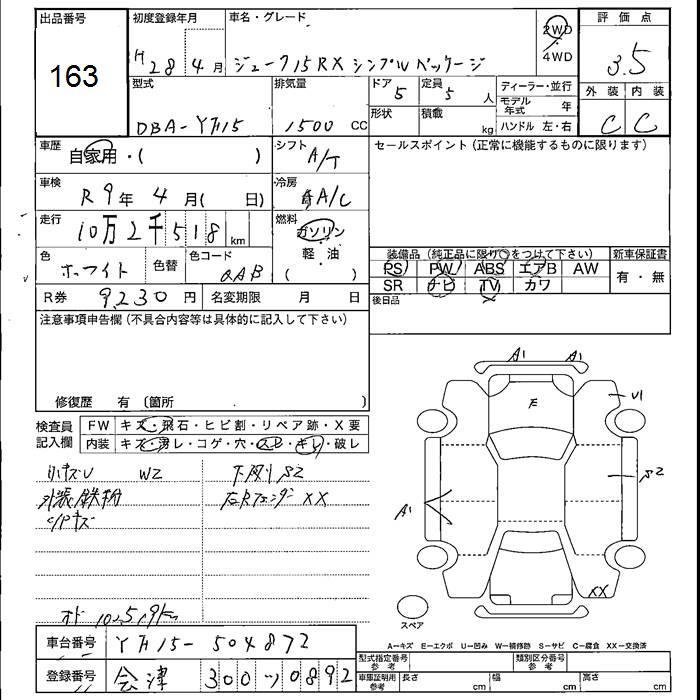 出品番号
163
初度登録年月
H 28年 4月
車名・グレード
ジューク 15RX シンプルパッケージ
2WD
・
4WD
評価点
3.5
外装 内装
C C
型式
DBA-YF15
排気量
1500 CC
ドア
5
定員
5 人
形状
積載
kg
ディーラー・並行
モデル年式 年
ハンドル 左・右
車歴
自家用・( )
シフト
A/T
セールスポイント(正常に機能するものに限ります)
車検
R 9年 4月( 日)
冷房
A/C
走行
10万2千518 km
燃料
ガソリン
軽・油
( )
色
ホワイト
色替
色コード
QAB
装備品(純正品に限り○をつけて下さい)
PS PW ABS エアB AW
SR ナビ TV カワ
新車保証書
有・無
後日品
R券 9230円
名変期限 月 日
注意事項申告欄(不具合内容等は具体的に記入して下さい)
修復歴 有〔箇所 〕
検査員
記入欄
FW キズ・飛石・ヒビ割・リペア跡・X要
内装 キズ・汚レ・コゲ・穴・スレ・キレ・破レ
小キズU W2
下廻りS2
外装鉄粉
左Rフェンダー XX
A1 A1
E
U1
S2
A1
XX
スペア
A-キズ E-エクボ U-凹み W-補修跡 S-サビ C-腐食 XX-交換済
車台番号 YF15-504872
登録番号 会津 300 ツ 0892
型式指定番号
参考
類別区分番号
参考
車庫証明用
参考
長さ cm
幅 cm
高さ cm